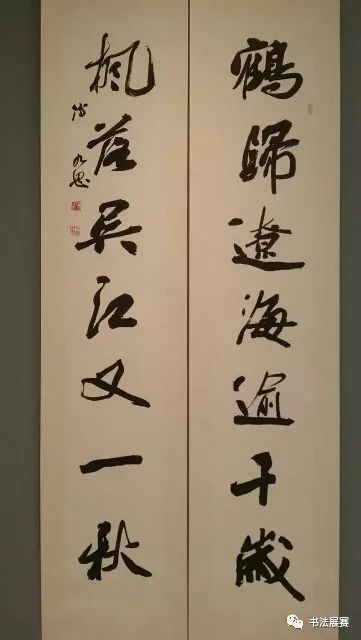 鶴歸遼海逾千歲
楓落吴江又一秋
书法展赛